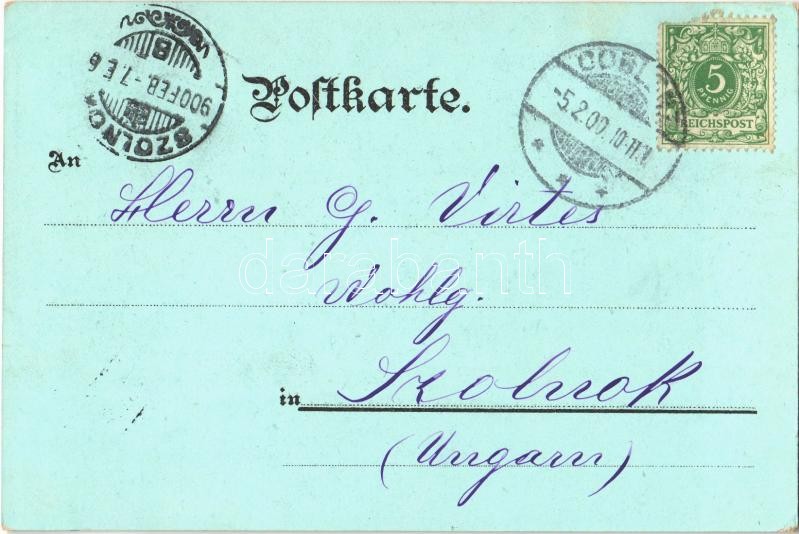 Postkarte.
SZOLNOK
900 FEB. 7. E 6
B
COBL
-5.2.00. 10-11.V.
5
PFENNIG
REICHSPOST
An
Herrn G. Virtes
Wohlg.
in Szolnok
(Ungarn)
darabanth